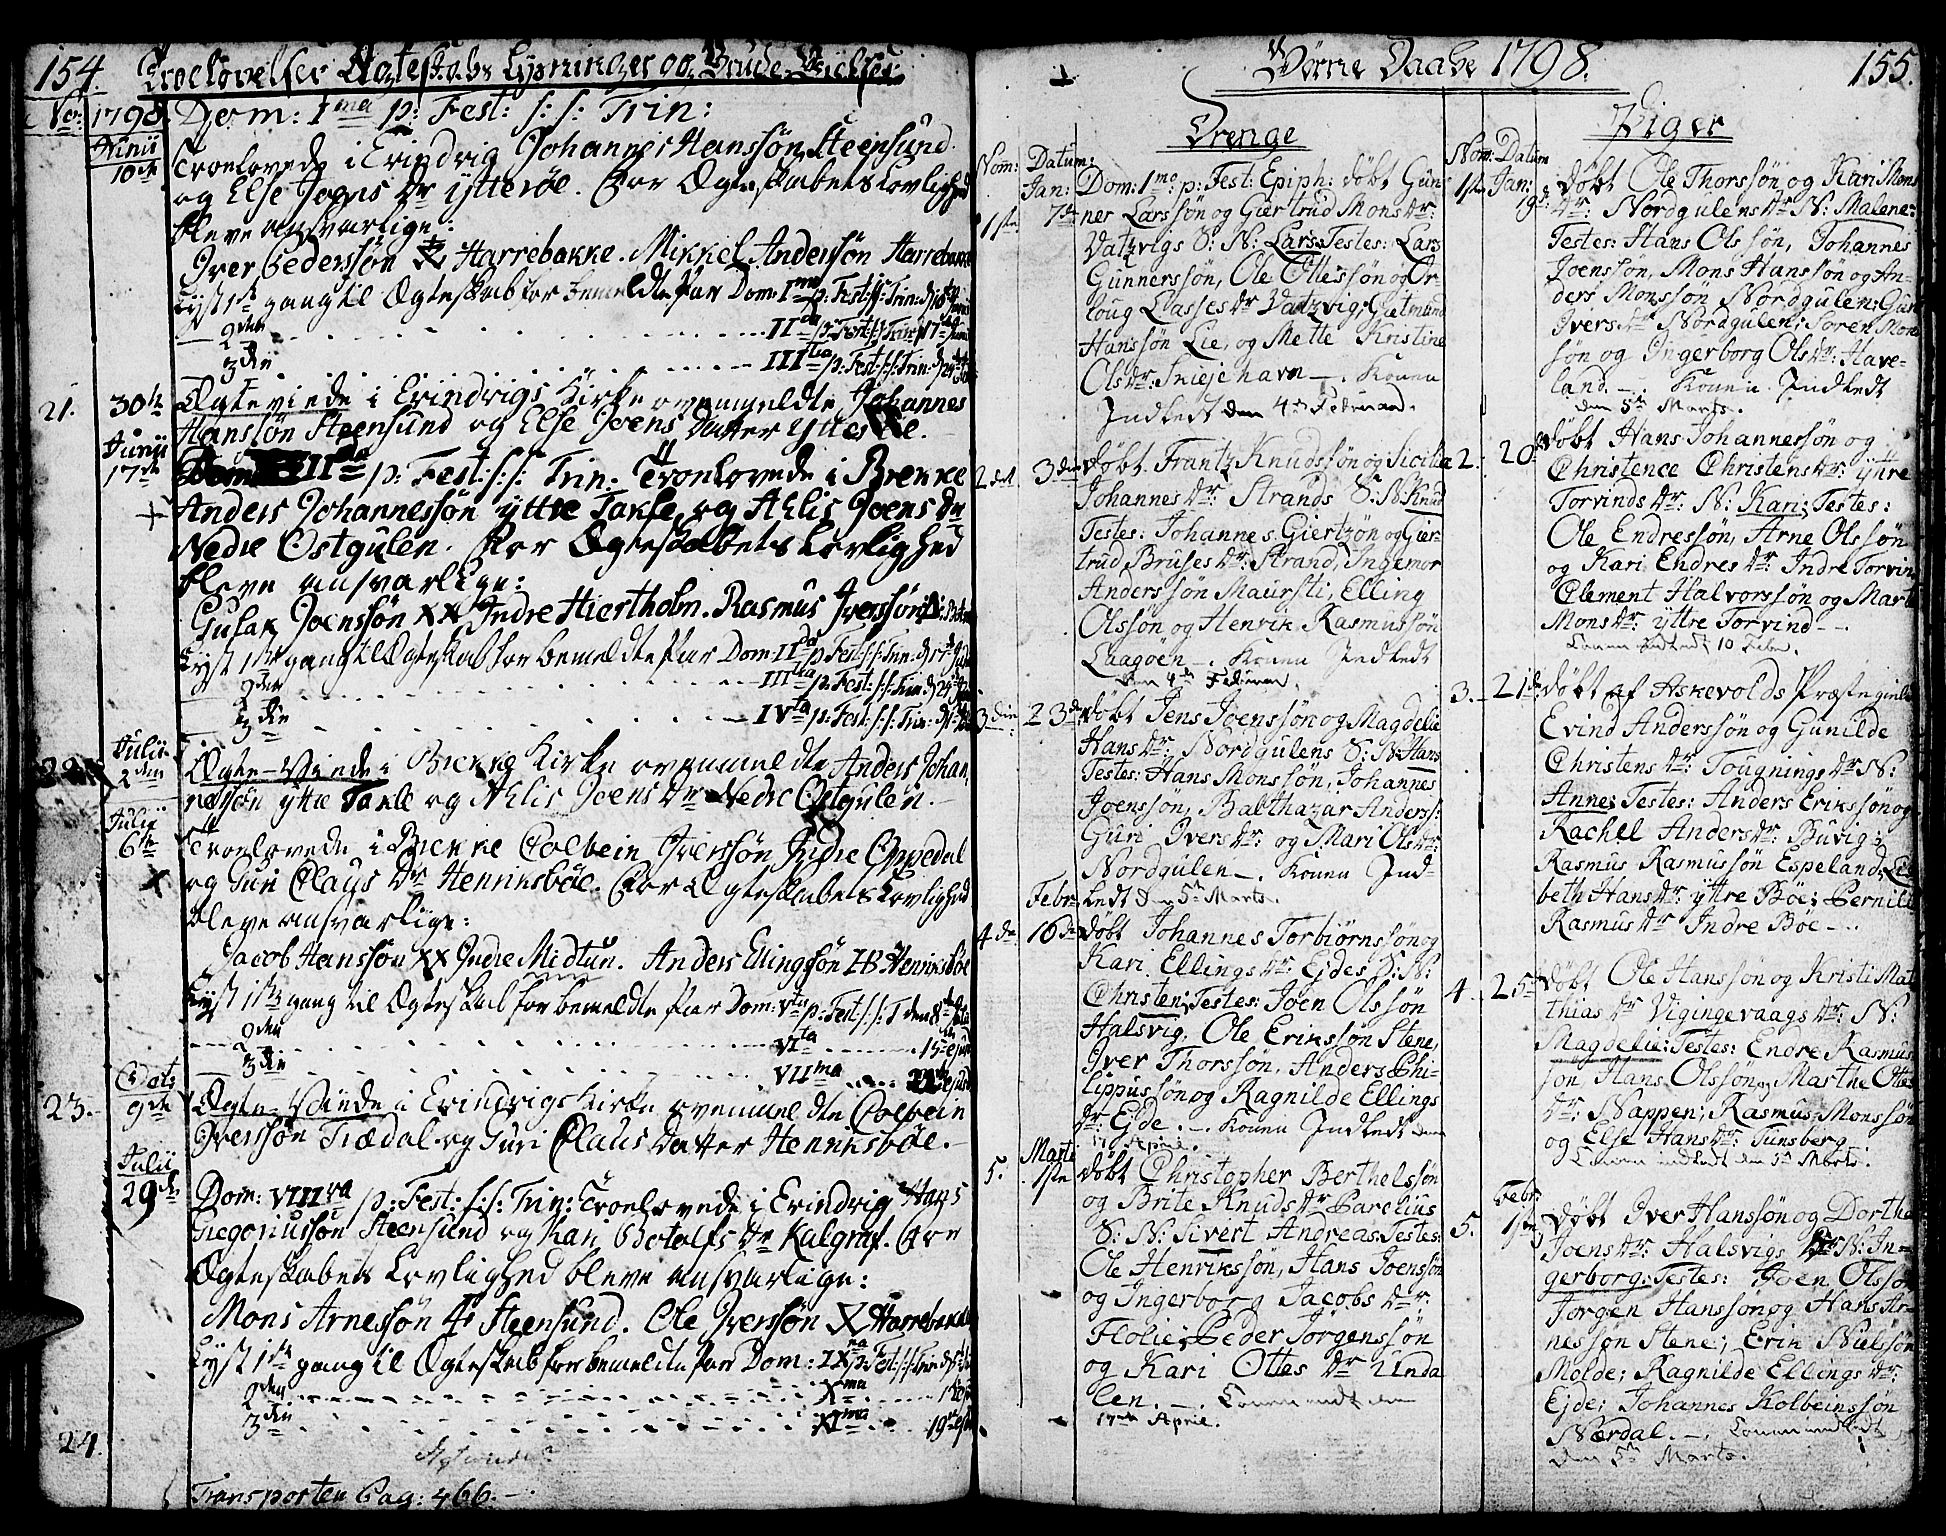 154. Troelovelser Ægteskabs Lysninger og Brude-Vielser
No: 1798. Dom: 1ma p: Fest: s: s: Trin:
Junii 10de Troelovede i Evindvig Johannes Hanssøn Steensund
og Else Joens Dr ytterøe. For Ægteskabets Lovlighed
bleve ansvarlige:
Iver Pederssøn Harrebakke. Mikkel Anderssøn Harrebakke
Lyst 1ste gang til Ægteskab for bemeldte Par Dom: 1ma p: Fest: s: s: Trin: d 10de Junii
2den IIda p: Fest: s: s: Trin: d 17de Junii
3die IIItia p: Fest: s: s: Trin: d 24de
21. 30te Ægteviede i Evindvigs Kirke ovenmeldte Johannes
Hanssøn Steensund og Else Joens Datter
Junii 17de Dom IIda p: Fest: s: s: Trin: Troelovede i Brekke
Anders Johannessøn yttre Takle og Ahlis Joens Dr
Nedre Ostgulen. For Ægteskabets Lovlighed
bleve ansvarlige:
Gulak Joenssøn XX Indre Hiertholm. Rasmus Iverssøn
Lyst 1ste gang til Ægteskab for bemeldte Par Dom: IIda p: Fest: s: s: Trin: d 17de
2den IIItia p: Fest: s: s: Trin: d 24de
3die IVta p: Fest: s: s: Trin: d 1ste
22. Julii 2den Ægte-Viede i Brekke Kirke ovenmeldte Anders Johan
nessøn yttre Takle og Ahlis Joens Dr Nedre Ostgulen.
Julii 6te Troelovede i Brekke Colbein Iverssøn Indre Oppedal
og Guri Claus Dr Henriksbøe. For Ægteskabets Lovlighed
bleve ansvarlige:
Jacob Hanssøn XX Indre Midtun. Anders Ellingssøn HB Henriksbøe
Lyst 1ste gang til Ægteskab for bemeldte Par Dom: Vta p: Fest: s: s: T den 8de
2den VIta 15de ejusd
3die VIIma 22de ejusd
23. Octr 9de Ægte-Viede i Evindvigs Kirke ovenmeldte Colbein
Iverssøn Trædal og Guri Claus Datter Henriksbøe.
Julii 29de Dom: VIIIva p: Fest: s: s: Trin: Troelovede i Evindvig Hans
Gregoriussøn Steensund og Kari Botolfs Dr Kalgraf. For
Ægteskabets Lovlighed bleve ansvarlige:
Mons Arnessøn Steensund. Ole Iverssøn X Harrebakke
Lyst 1ste gang til Ægteskab for bemeldte Par Dom: IXna p: Fest: s: s: Trin: d 5te
2den Xma 12
3die XIma 19de ejusd
24.
Transporten Pag: 466.
Børne Daabe 1798. 155.
Drenge
Nom: Datum:
Jan: Dom: 1ma p: Fest: Epiph: døbt Gun
1ste 7de nes Larssøn og Giertrud Mons Dr:
Datzvigs S: N: Lars Testes: Lars
Gunnerssøn, Ole Ollessøn og Or
loug Lasses Dr Datzvig; Gutmund
Hanssøn Lie, og Mette Kristine
Ols Dr: Sniejehavn. Konen
Indledt den 4de Februar.
2det 3die døbt Frantz Knudssøn og Sicilia
Johannes Dr: Strands S: N: Knud
Testes: Johannes Giertzøn og Gier-
trud Bruses Dr: Strand, Ingemor
Anderssøn Maursti, Elling
Olssøn og Henrik Rasmussøn
Laagøen. Konen Indledt
den 4de Februar.
3die 23de døbt Jens Joenssøn og Magdelie
Hans Dr: Nordgulens S: N: Hans
Testes: Hans Monssøn, Johannes
Joenssøn, Balthazar Anderss:
Guri Ivers Dr: og Mari Ols Dr:
Nordgulen. Konen Ind-
Febr: ledt den 5te Marts.
4de 16de døbt Johannes Torbiørnssøn og
Kari Ellings Dr: Ejdes S: N:
Christen; Testes: Joen Olssøn
Halsvig, Ole Erikssøn Stene,
Iver Thorssøn, Anders Phi-
lippussøn og Ragnilde Ellings
Dr: Ejde. Konen Indledt den
17 April.
Marts
5. 1ste døbt Christopher Berthelssøn
og Brite Knuds Dr Parelius
S: N: Sivert Andreas. Testes:
Ole Henrikssøn, Hans Joenssøn
og Ingerborg Jacobs Dr:
Flolie; Peder Jørgenssøn
og Kari Ottes Dr Unda
len. Konen indt den
17de April.
Piger
Nom: Datum
1ste Jan: døbt Ole Thorssøn og Kari Mons
19de Dr: Nordgulens Dr N: Malene:
Testes: Hans Olssøn, Johannes
Joenssøn, Mons Hanssøn og An-
ders Monssøn Nordgulen; Guri
Ivers Dr Nordgulen; Søren Mons
søn og Ingerborg Ols Dr: Have-
land. Konen Indledt
den 5te Marts.
2. 20de døbt Hans Johannessøn og
Christence Christens Dr: yttre
Torvinds Dr: N: Kari; Testes:
Ole Endressøn, Arne Olssøn
og Kari Endres Dr: Indre Torvin
Clement Halvorssøn og Marte
Mons Dr: yttre Torvind
Konen indledt 10 Febr.
3. 21de døbt af Askevolds Præstegield
Evind Anderssøn og Gunilde
Christens Dr: Tougnings Dr N:
Anne; Testes: Anders Erikssøn og
Rachel Anders Dr: Buvig;
Rasmus Rasmussøn Espeland, Lis
beth Hans Dr: yttre Bøe; Pernille
Rasmus Dr Indre Bøe
4. 25de døbt Ole Hanssøn og Kristi Mat
thias Dr Vigingevaags Dr: N:
Magdelie: Testes: Endre Rasmus
søn, Hans Olssøn og Marthe Ottes
Dr: Nappen; Rasmus Monssøn
og Else Hans Dr: Tunsberg
Konen indledt den 5te Marts.
Febr
5. 1ste døbt Iver Hanssøn og Dorthe
Joens Dr: Halsvigs Dr N: In-
gerborg: Testes: Joen Olssøn
Jørgen Hanssøn og Hans Ar-
nessøn Stene; Erik Nielssøn
Molde; Ragnilde Ellings Dr:
Ejde; Johannes Kolbeinssøn
Nærdal. Konen indledt
den 5te Marts.